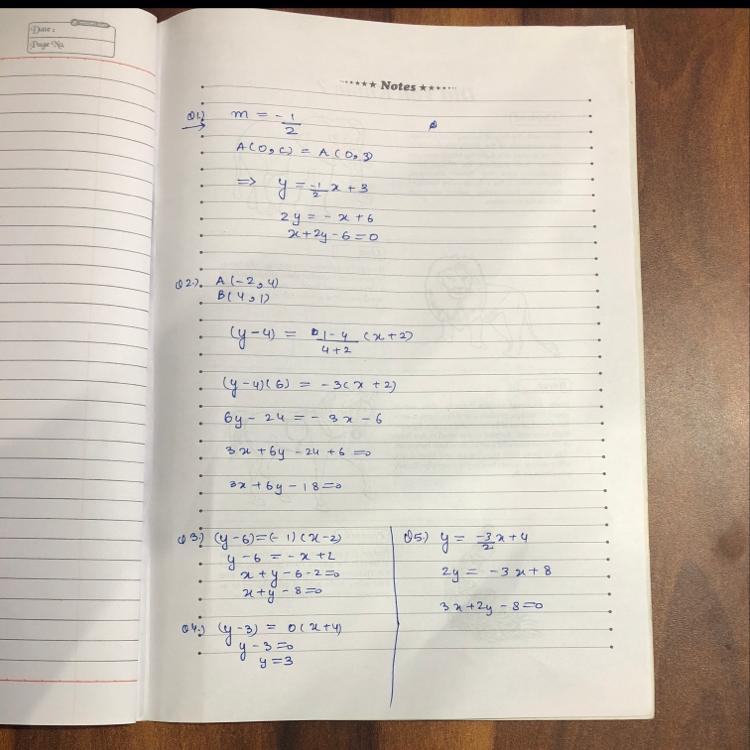 Date :
Page No.
★★★★★ Notes ★★★★★
Q1.) m = -1/2
A(0,c) = A(0,3)
=> y = -1/2 x + 3
2y = -x + 6
x+2y-6=0
Q2.) A(-2,4)
B(4,1)
(y-4) = 1-4/4+2 (x+2)
(y-4)(6) = -3(x+2)
6y - 24 = -3x - 6
3x + 6y - 24 + 6 = 0
3x + 6y - 18 = 0
Q3.) (y-6)=(-1)(x-2)
y-6 = -x+2
x+y-6-2=0
x+y-8=0
Q4.) (y-3) = 0(x+4)
y-3=0
y=3
Q5.) y = -3/2 x+4
2y = -3x+8
3x+2y-8=0